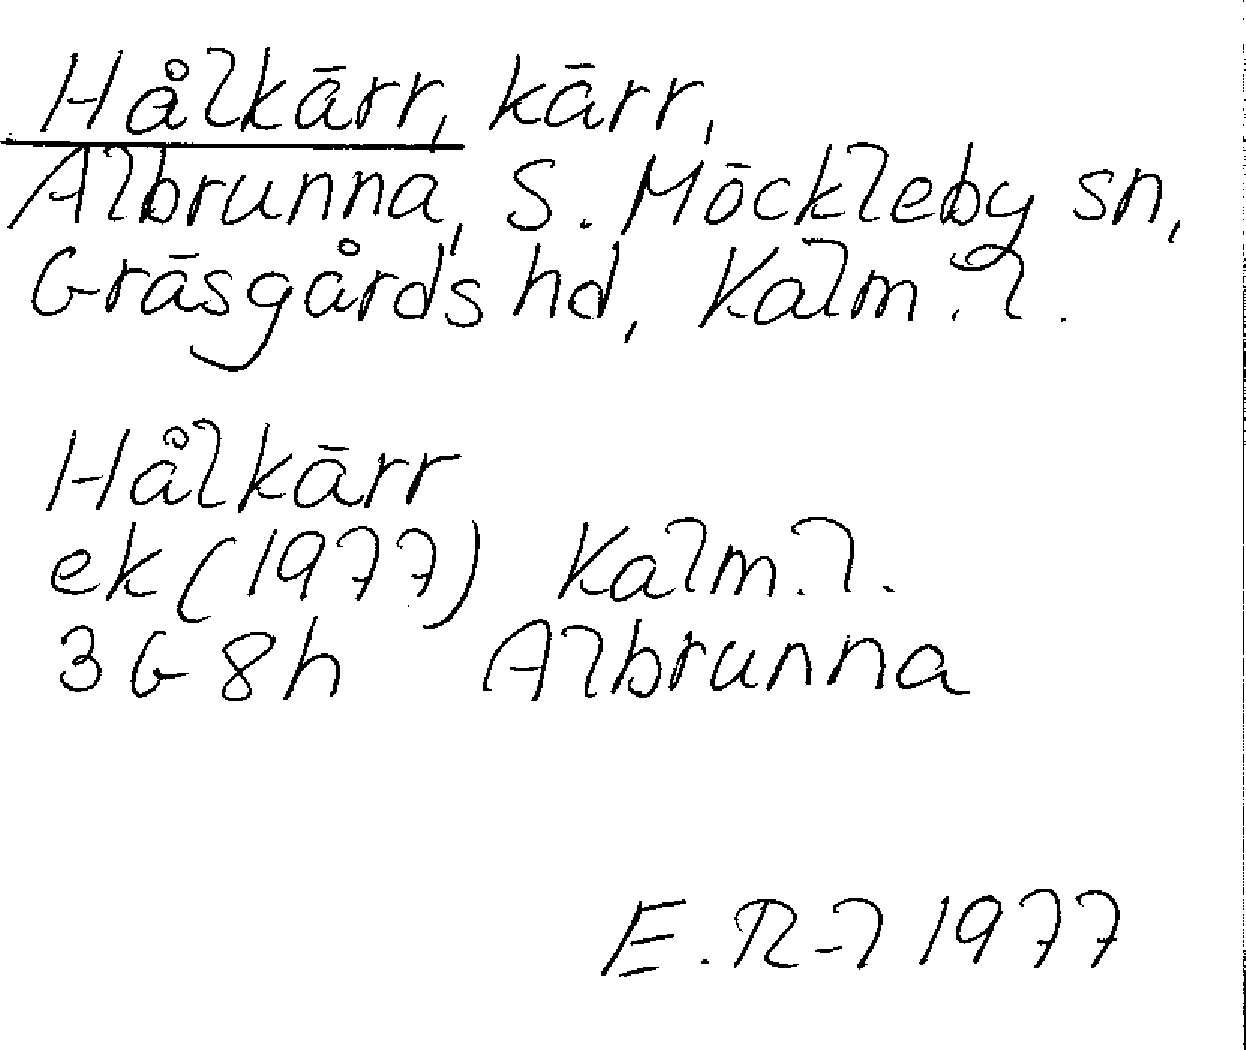 Hålkärr, kärr,
Albrunna, S. Möckleby sn,
Gräsgårds hd, Kalm. l.
Hålkärr
ek (1977) Kalm. l.
3G 8h Albrunna
E. R-l 1977